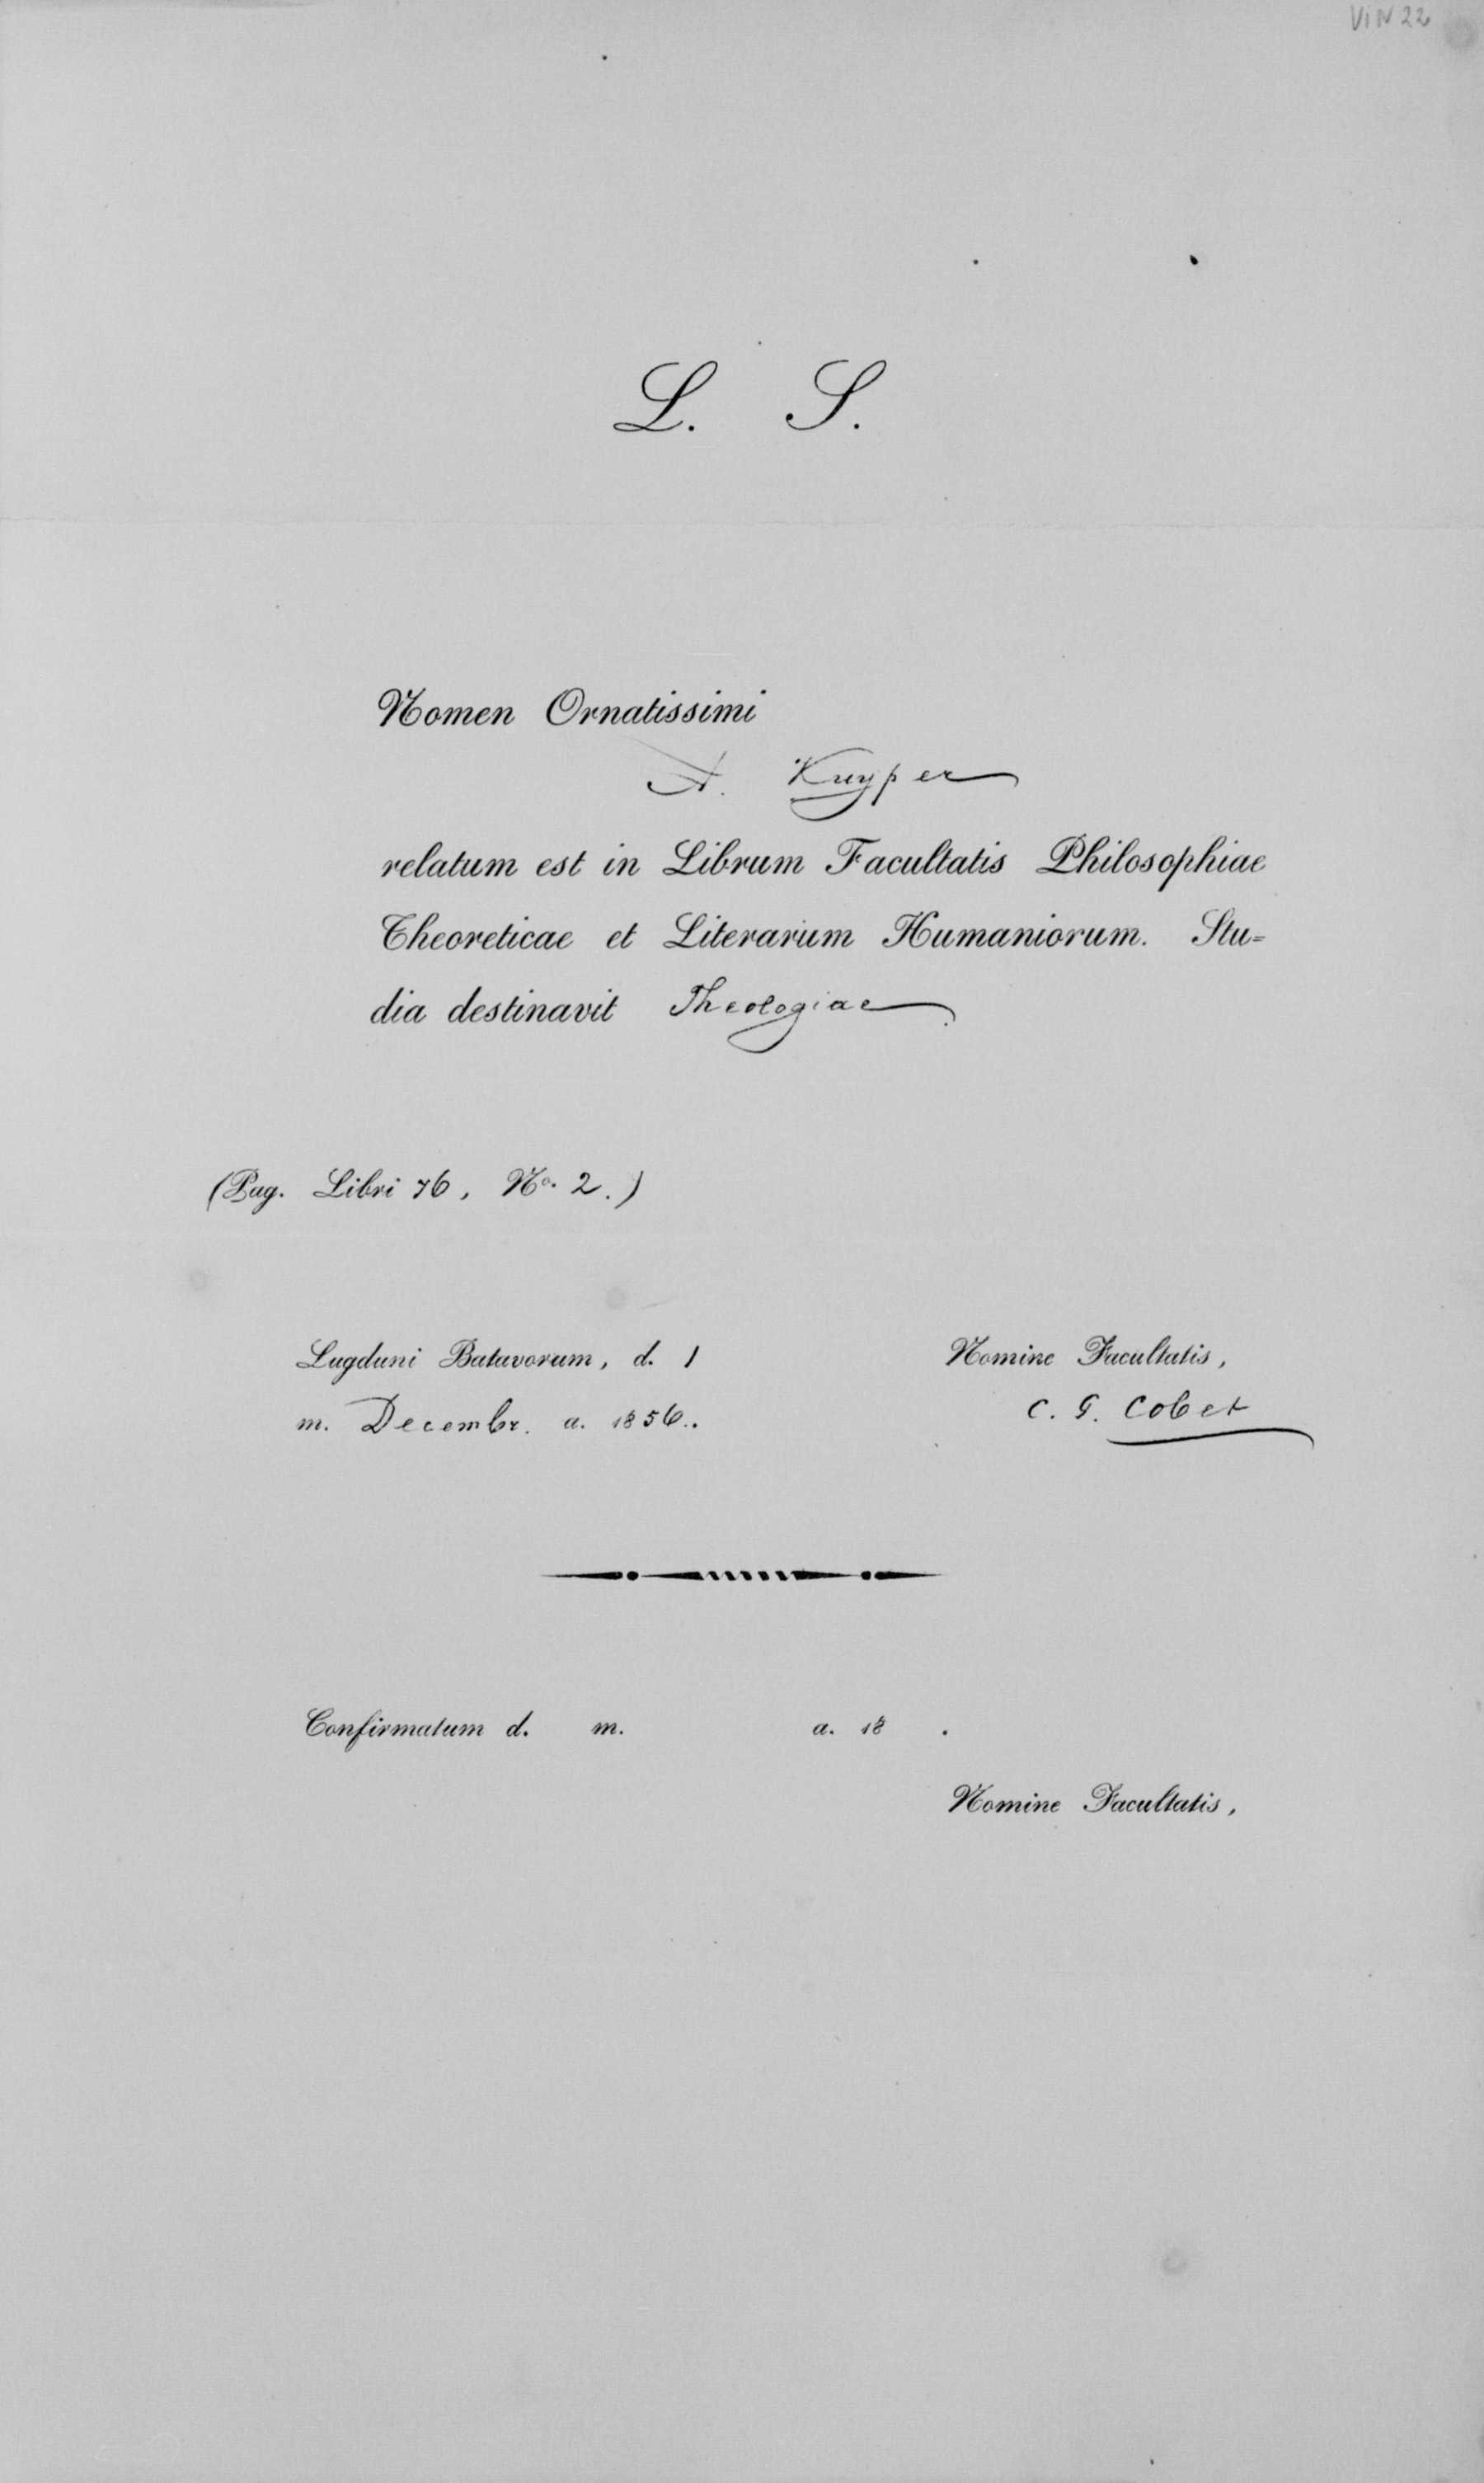 VIN 22
L. S.
Nomen Ornatissimi
A. Kuyper
relatum est in Librum Facultatis Philosophiae
Theoreticae et Literarum Humaniorum. Stu=
dia destinavit Theologiae.
(Pag. Libri 76, No. 2.)
Lugduni Batavorum, d. 1
m. Decembr. a. 1856..
Nomine Facultatis,
C. G. Cobet
Confirmatum d. m. a. 18 .
Nomine Facultatis,